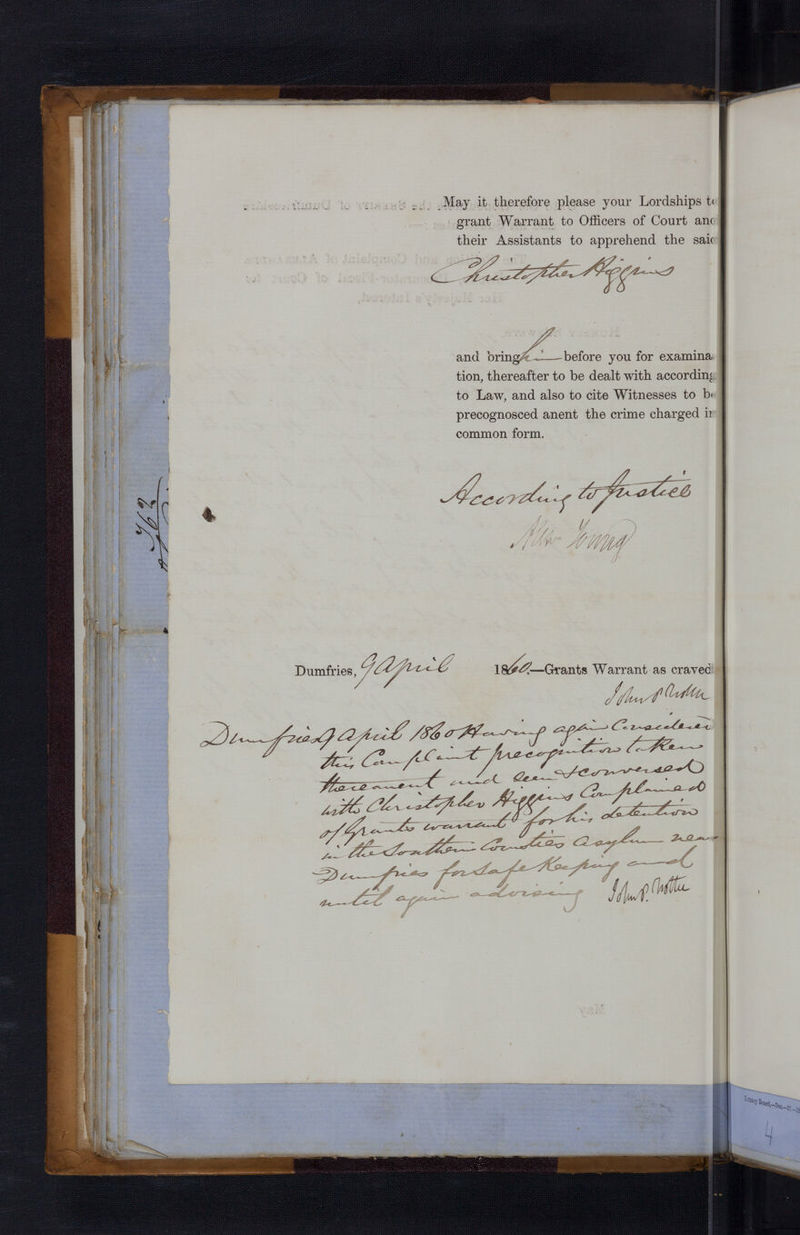 May it therefore please your Lordships to
grant Warrant to Officers of Court and
their Assistants to apprehend the said
Christopher Higgins
and bring before you for examina-
tion, thereafter to be dealt with according
to Law, and also to cite Witnesses to be
precognosced anent the crime charged in
common form.
According to Justice
Young
Dumfries, 9 April 1860.—Grants Warrant as craved
John P Trotter
Dumfries 9 April 1860 Having again Considered
this Complaint precognition taken
thereanent and seen & conversed
with Christopher Higgins Complained
of Grants warrant for his detention
in the Southern Counties Asylum near
Dumfries for safe Keeping and
until again advising John P. Trotter
May
4